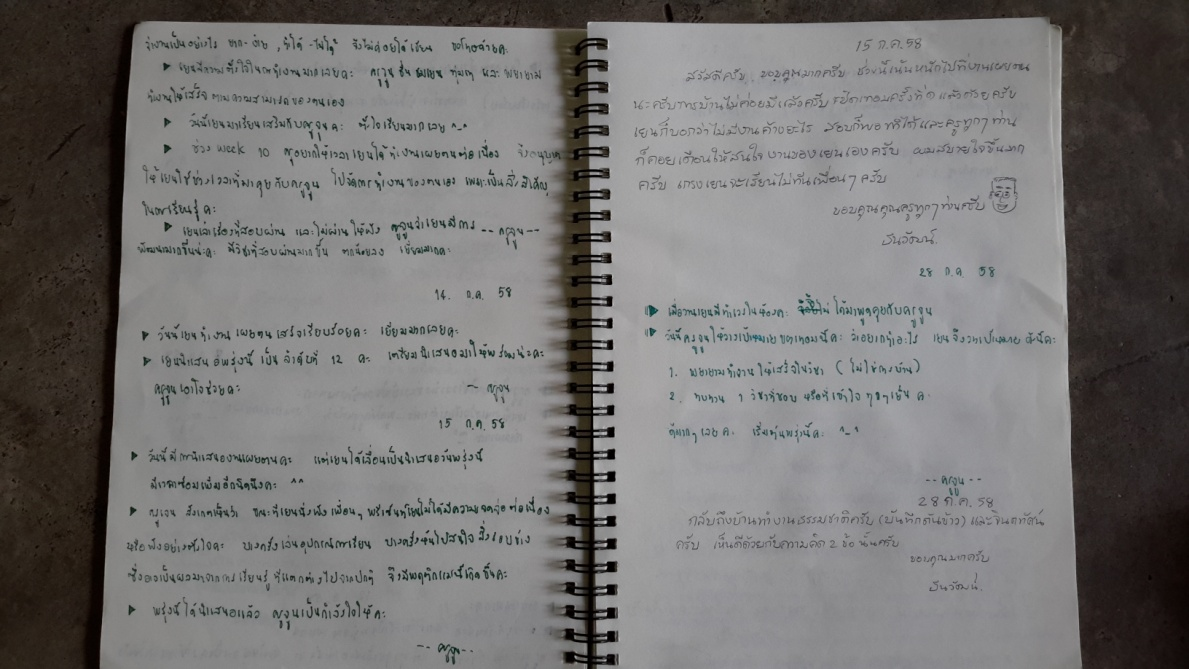 ทำงานเป็นอย่างไร ยาก-ง่าย, ทำได้-ไม่ได้ จึงไม่ค่อยได้เขียน ขอโทษด้วยค่ะ
▶ เยนมีความตั้งใจในการทำงานมากเลยค่ะ ครูจูนชื่นชมเยน ทุ่มเท และ พยายาม
ทำงานให้เสร็จ ตามความสามารถของตนเอง
▶ วันนี้เยนมาเรียนเสริมกับครูจูนค่ะ ตั้งใจเรียนมากเลย ^-^
▶ ช่วง week 10 ครูอยากให้เวลาเยนได้ทำงานเผยตนต่อเนื่อง จึงอนุญาต
ให้เยนใช้ช่วงเวลาที่มาคุยกับครูจูน ไปจัดการทำงานของตนเอง เพราะเป็นสิ่งสำคัญ
ในการเรียนรู้ค่ะ
▶ เยนเล่าเรื่องที่สอบผ่าน และไม่ผ่านให้ฟัง ครูจูนว่าเยนมีการ -- ครูจูน --
พัฒนามากขึ้นนะคะ มีวิชาที่สอบผ่านมากขึ้น ตกน้อยลง เยี่ยมมากค่ะ
14. ก.ค. 58
▶ วันนี้เยนทำงาน เผยตน เสร็จเรียบร้อยค่ะ เยี่ยมมากเลยค่ะ
▶ เยนนำเสนอพรุ่งนี้ เป็น ลำดับที่ 12 ค่ะ เตรียมนำเสนอมาให้พร้อมนะคะ
ครูจูนเอาใจช่วยค่ะ - ครูจูน
15 ก.ค. 58
▶ วันนี้มีการนำเสนองานเผยตนค่ะ แต่เยนได้เลื่อนเป็นนำเสนอวันพรุ่งนี้
มีเวลาซ้อมเพิ่มอีกนิดนึงค่ะ ^^
▶ ครูจูน สังเกตเห็นว่า ขณะที่เยนนั่งฟังเพื่อนๆ พรีเซ้นท์เยนไม่ได้มีความจดจ่อต่อเนื่อง
หรือฟังอย่างตั้งใจค่ะ บางครั้งเล่นอุปกรณ์การเรียน บางครั้งหันไปสนใจสิ่งรอบข้าง
ซึ่งอาจเป็นผลมาจากการเรียนรู้ ที่แตกต่างไปจากปกติ จึงมีพฤติกรรมนี้เกิดขึ้นค่ะ
▶ พรุ่งนี้ได้นำเสนอแล้ว ครูจูนเป็นกำลังใจให้ค่ะ
-- ครูจูน --
15 ก.ค. 58
สวัสดีครับ ขอบคุณมากครับ ช่วงนี้เน้นหนักไปที่งานเผยตน
นะครับ การบ้านไม่ค่อยมีแล้วครับ แล้วครับ
เยนก็บอกว่าไม่มีงานค้างอะไร สอบก็พอทำได้และครูทุกๆ ท่าน
ก็คอยเตือนให้สนใจงานของเยนเองครับ ผมสบายใจขึ้นมาก
ครับ เกรงเยนจะเรียนไม่ทันเพื่อนๆ ครับ
ขอบคุณคุณครูทุกๆ ท่านครับ
ธันวัฒน์.
28 ก.ค. 58
▶ เมื่อวานเยนมีทำเวรในห้องค่ะ ไม่ได้มาพูดคุยกับครูจูน
▶ วันนี้ครูจูนให้วางเป้าหมายของเทอมนี้ค่ะ ว่าอยากทำอะไร เยนจึงวางเป้าหมาย ดังนี้ค่ะ
1. พยายามทำงานให้เสร็จในวิชา (ไม่ใช่การบ้าน)
2. ทบทวน 1 วิชาที่ชอบ หรือที่เข้าใจ ทุกๆ เย็น ค่ะ
ดีมากๆ เลยค่ะ เริ่มต้นพรุ่งนี้ค่ะ ^-^
-- ครูจูน --
28 ก.ค. 58
กลับถึงบ้านทำงานธรรมชาติครับ (บันทึกต้นข้าว) และจินตทัศน์
ครับ เห็นดีด้วยกับความคิด 2 ข้อ นั้นครับ
ขอบคุณมากครับ
ธันวัฒน์.